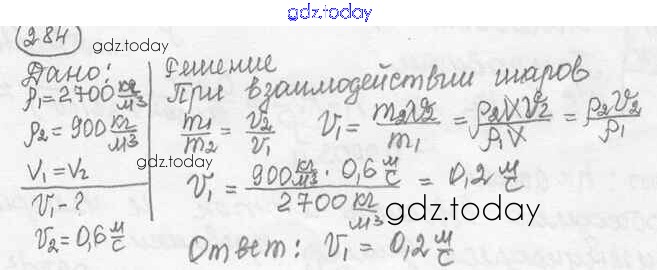 gdz.today
284 gdz.today
Дано:
ρ₁=2700 кг/м³
ρ₂=900 кг/м³
V₁=V₂
v₁-?
v₂=0,6 м/с
Решение
При взаимодействии шаров
m₁/m₂ = v₂/v₁ v₁ = m₂v₂/m₁ = ρ₂Vv₂/ρ₁V = ρ₂v₂/ρ₁
gdz.today
v₁ = 900 кг/м³ · 0,6 м/с / 2700 кг/м³ = 0,2 м/с
gdz.today
Ответ: v₁ = 0,2 м/с